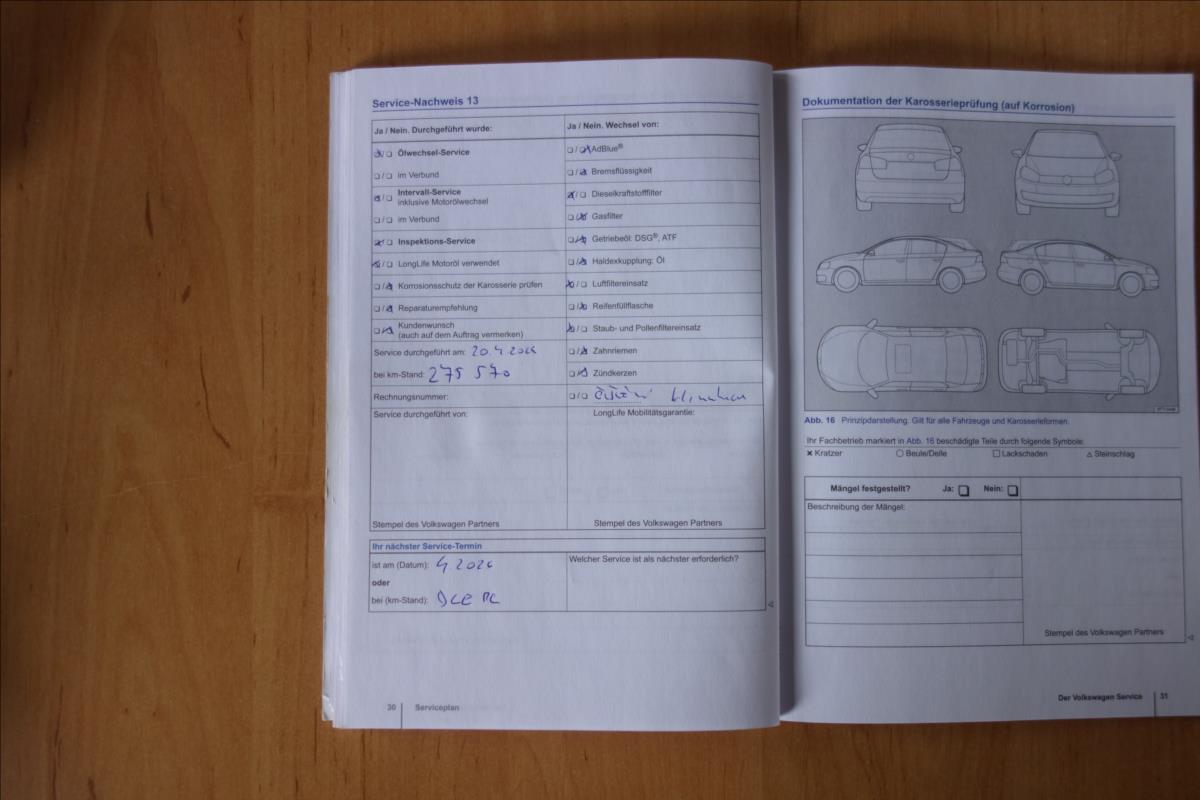 Service-Nachweis 13
Ja / Nein. Durchgeführt wurde:
Ja / Nein. Wechsel von:
Ölwechsel-Service
AdBlue®
im Verbund
Bremsflüssigkeit
Intervall-Service
inklusive Motorölwechsel
Dieselkraftstofffilter
im Verbund
Gasfilter
Inspektions-Service
Getriebeöl: DSG®, ATF
LongLife Motoröl verwendet
Haldexkupplung: Öl
Korrosionsschutz der Karosserie prüfen
Luftfiltereinsatz
Reparaturempfehlung
Reifenfüllflasche
Kundenwunsch
(auch auf dem Auftrag vermerken)
Staub- und Pollenfiltereinsatz
Service durchgeführt am: 20.4.
Zahnriemen
bei km-Stand: 275 570
Zündkerzen
Rechnungsnummer:
Service durchgeführt von:
LongLife Mobilitätsgarantie:
Stempel des Volkswagen Partners
Stempel des Volkswagen Partners
Ihr nächster Service-Termin
ist am (Datum):
Welcher Service ist als nächster erforderlich?
oder
bei (km-Stand): DLE PC
30 Serviceplan
Dokumentation der Karosserieprüfung (auf Korrosion)
Abb. 16 Prinzipdarstellung. Gilt für alle Fahrzeuge und Karosserieformen.
Ihr Fachbetrieb markiert in Abb. 16 beschädigte Teile durch folgende Symbole:
× Kratzer ○ Beule/Delle □ Lackschaden △ Steinschlag
Mängel festgestellt? Ja: Nein:
Beschreibung der Mängel:
Stempel des Volkswagen Partners
Der Volkswagen Service 31